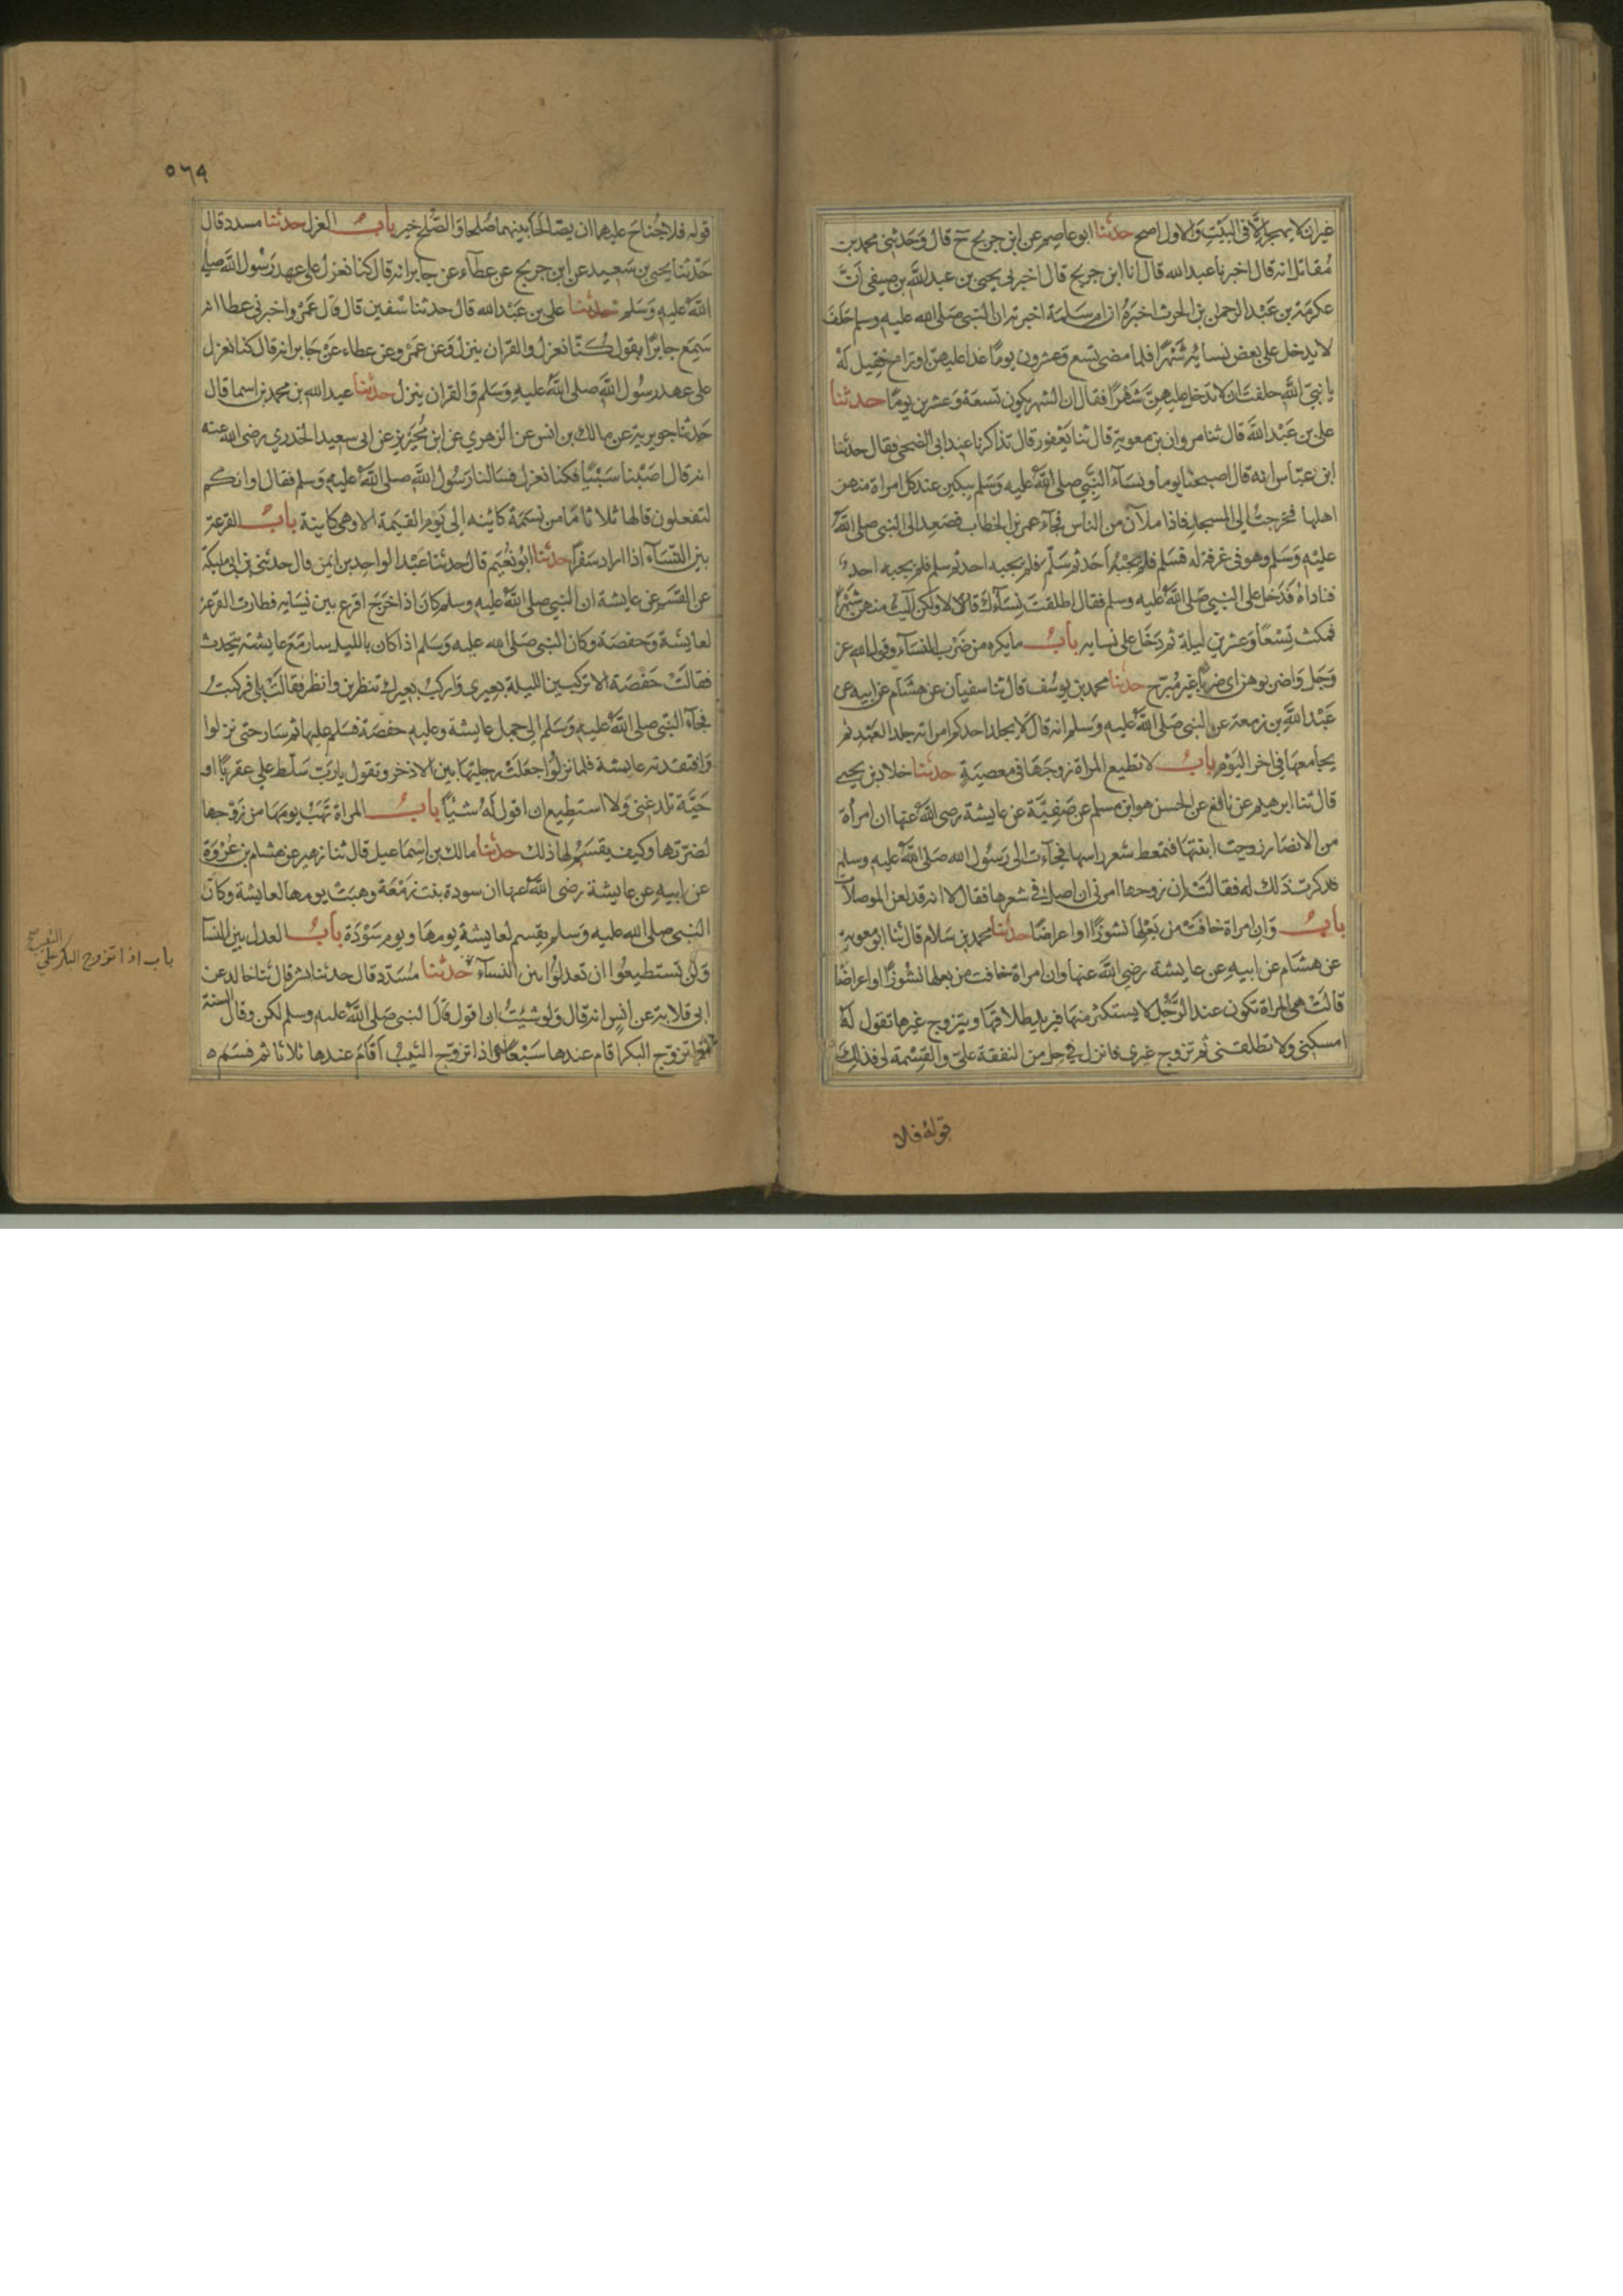 غيران لا يهجر الا فى البيت والاول اصح حدثنا ابو عاصم عن ابن جريج ح قال وحدثنى محمد بن
مقاتل انه قال اخبرنا عبدالله قال انا ابن جريج قال اخبرنى يحيى بن عبدالله بن صيفى ان
عكرمة بن عبد الرحمن بن الحرث اخبره ان ام سلمة اخبرته ان النبى صلى الله عليه وسلم حلف
لا يدخل على بعض نسايه شهرا فلما مضى تسع وعشرون يوما غدا عليهن او راح فقيل له
يا نبى الله حلفت ان لا تدخل عليهن شهرا فقال ان الشهر يكون تسعة وعشرين يوما حدثنا
على بن عبد الله قال ثنا مروان بن معوية قال ثنا يعفور قال تذاكرنا عند ابى الضحى فقال حدثنا
ابن عباس انه قال اصبحنا يوما ونساء النبى صلى الله عليه وسلم يبكين عند كل امراة منهن
اهلها فخرجت الى المسجد فاذا ملآن من الناس فجاء عمر بن الخطاب فصعد الى النبى صلى الله
عليه وسلم وهو فى غرفة له فسلم فلم يجبه احد ثم سلم فلم يجبه احد ثم سلم فلم يجبه احد
فناداه فدخل على النبى صلى الله عليه وسلم فقال اطلقت نساءك قال لا ولكن آليت منهن شهرا
فمكث تسعا وعشرين ليلة ثم دخل على نسايه باب ما يكره من ضرب النساء وقول الله عز
وجل واضربوهن اى ضربا غير مبرح حدثنا محمد بن يوسف قال ثنا سفيان عن هشام عن ابيه عن
عبد الله بن زمعة عن النبى صلى الله عليه وسلم انه قال لا يجلد احدكم امراته جلد العبد ثم
يجامعها فى اخر اليوم باب لا تطيع المراة زوجها فى معصية حدثنا خلاد بن يحيى
قال ثنا ابرهيم عن نافع عن الحسن هو ابن مسلم عن صفية عن عايشة رضى الله عنها ان امرأة
من الانصار زوجت ابنتها فتمعط شعر راسها فجاءت الى رسول الله صلى الله عليه وسلم
فذكرت ذلك له فقالت ان زوجها امرنى ان اصل فى شعرها فقال لا انه قد لعن الموصلات
باب وان امراة خافت من بعلها نشوزا او اعراضا حدثنا محمد بن سلام قال ثنا ابو معوية
عن هشام عن ابيه عن عايشة رضى الله عنها وان امراة خافت من بعلها نشوزا او اعراضا
قالت هى المراة تكون عند الرجل لا يستكثر منها فيريد طلاقها ويتزوج غيرها تقول له
امسكنى ولا تطلقنى ثم تزوج غيرى فانزل فى حل من النفقة على والقسمة لى فذلك
قوله فلا
٥٦٩
قوله فلا جناح عليهما ان يصالحا بينهما صلحا والصلح خير باب العزل حدثنا مسدد قال
حدثنا يحيى بن سعيد عن ابن جريج عن عطاء عن جابر انه قال كنا نعزل على عهد رسول الله صلى
الله عليه وسلم حدثنا على بن عبد الله قال حدثنا سفين قال قال عمرو اخبرنى عطا انه
سمع جابرا يقول كنا نعزل والقران ينزل وعن عمرو عن عطاء عن جابر انه قال كنا نعزل
على عهد رسول الله صلى الله عليه وسلم والقران ينزل حدثنا عبد الله بن محمد بن اسما قال
حدثنا جويرية عن مالك بن انس عن الزهرى عن ابن محيريز عن ابى سعيد الخدرى رضى الله عنه
انه قال اصبنا سبيا فكنا نعزل فسالنا رسول الله صلى الله عليه وسلم فقال او انكم
لتفعلون قالها ثلاثا ما من نسمة كاينة الى يوم القيمة الا وهى كاينة باب القرعة
بين النساء اذا اراد سفرا حدثنا ابو نعيم قال حدثنا عبد الواحد بن ايمن قال حدثنى ابن ابى مليكة
عن القسم عن عايشة ان النبى صلى الله عليه وسلم كان اذا خرج اقرع بين نسايه فطارت القرعة
لعايشة وحفصة وكان النبى صلى الله عليه وسلم اذا كان بالليل سار مع عايشة يتحدث
فقالت حفصة الا تركبين الليلة بعيرى واركب بعيرك تنظرين وانظر فقالت بلى فركبت
فجاء النبى صلى الله عليه وسلم الى جمل عايشة وعليه حفصة فسلم عليها ثم سار حتى نزلوا
وافتقدته عايشة فلما نزلوا جعلت رجليها بين الاذخر وتقول يا رب سلط على عقربا او
حية تلدغنى ولا استطيع ان اقول له شيئا باب المراة تهب يومها من زوجها
لضرتها وكيف يقسم لها ذلك حدثنا مالك بن اسماعيل قال ثنا زهير عن هشام بن عروة
عن ابيه عن عايشة رضى الله عنها ان سودة بنت زمعة وهبت يومها لعايشة وكان
النبى صلى الله عليه وسلم يقسم لعايشة يومها ويوم سودة باب العدل بين النسا
ولن تستطيعوا ان تعدلوا بين النساء حدثنا مسدد قال حدثنا بشر قال ثنا خالد عن
ابى قلابة عن انس انه قال ولو شيت ان اقول قال النبى صلى الله عليه وسلم لكن وقال السنة
تزوج البكر اقام عندها سبعا واذا تزوج الثيب اقام عندها ثلاثا ثم قسم
باب اذا تزوج البكر على الثيب صح